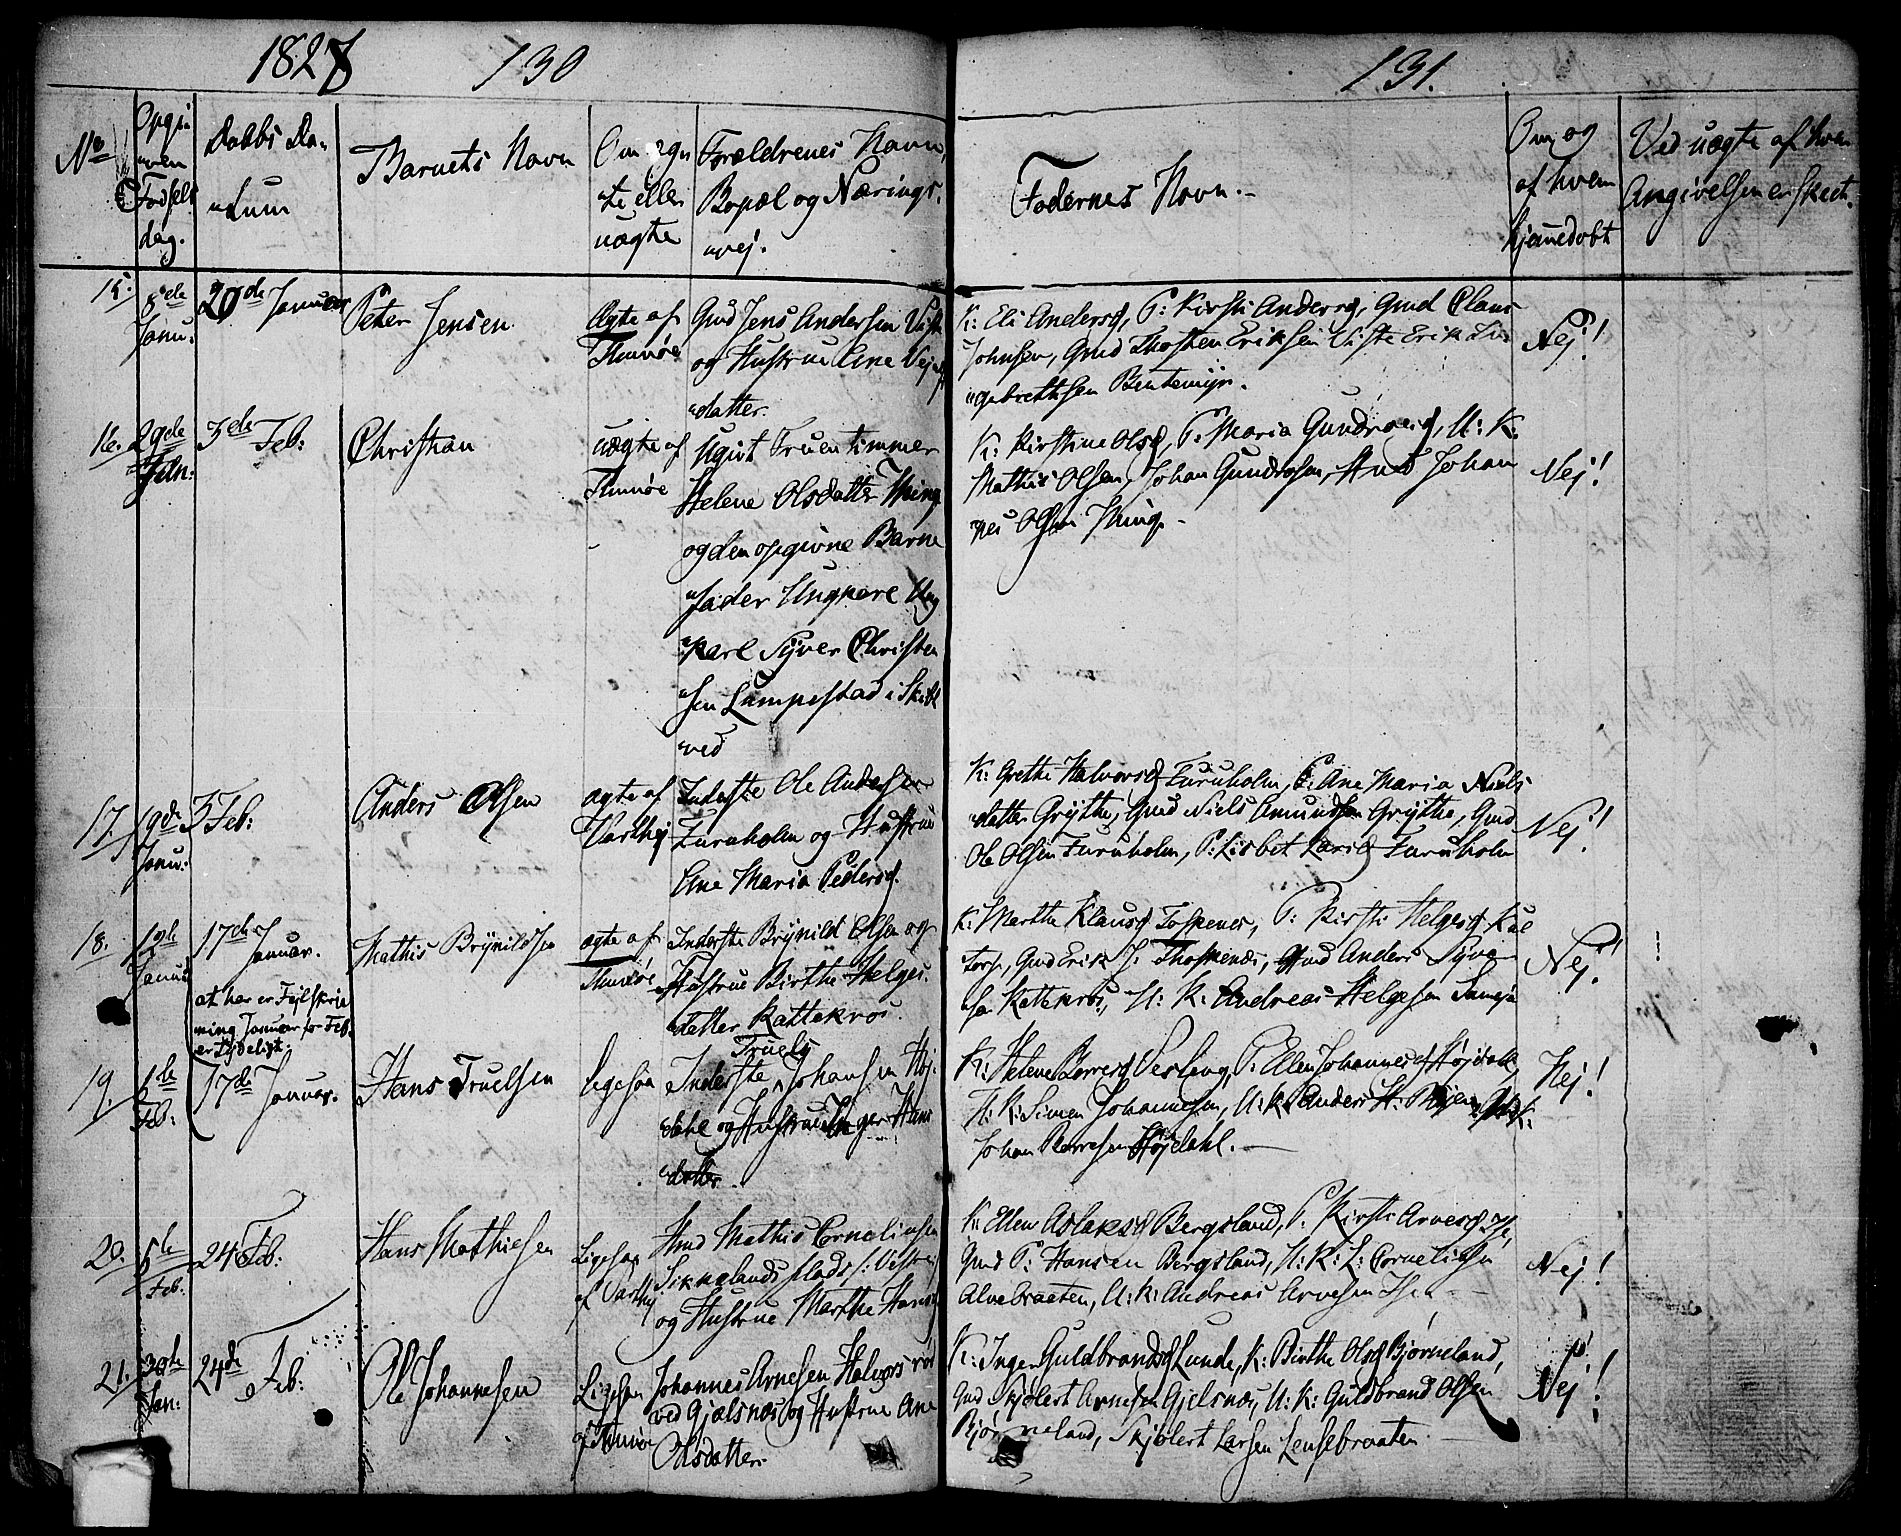 1828
130
131.
No
Opgi
ven
Fødsels
dag.
Daabs Da-
tum
Barnets Navn
Om ægte
eller
uægte
Forældrenes Navn,
Bopæl og Nærings-
vej.
Faddernes Navn.-
Om og
af hvem
hjemmedøbt
Ved uægte af hvem
Angivelsen er skeet.
15.
8de
Janu.
20de Januar
Peter Jensen
Ægte af
Thumøe
Gmd Jens Andersen Viste
og Hustrue Ane Vej
datter
K: Eli Andersd, P: Kirsti Andersd, Gmd Claus
Johnsen, Gmd Thosten Eriksen Viste Erik In
gebrettsen Bentemyr.
Nej!
16.
29de
3de Feb:
Christian
uægte af
Thumøe
Ugivt Fruentimmer
Helene Olsdatter Thing
og den opgivne Barne
fader Ungkarl Ung
karl Syver Christen
sen Lumpestad i Skibt
ved
K: Kirstine Olsd, P: Maria Gundersd, U: K:
Mathis Olsen, Johan Gundersen, Gmd Johan
nes Olsen Thing.-
Nej!
17.
19de
Janu.
3 Feb:
Anders Olsen
ægte af
Varthej
Inderste Ole Andersen
Furuholm og Hustrue
Ane Maria Pedersd.
K: Grethe Halvorsd Furuholm, P: Ane Maria Niels
datter Grytte, Gmd Niels Amundsen Grytte, Gmd
Ole Olsen Furuholm, P: Lisbet Larsd Furuholm
Nej!
18.
Janu.
17de Januar.
at her er Fejlskriv
ning Januar for Feb.
er tydeligt.
Mathis Brynildsen
ægte af
Thumøe
Inderste Brynild Olsen og
Hustrue Birthe Helges
datter Kattekros.
K: Marthe Klausd Tospenes, P: Kirsti Helgesd Kul
torp, Gmd Erik J. Thospenæs, Gmd Anders Syver
sen Kattekros, U: K: Andreas Helgesen
Nej!
19.
1de
Feb:
17de Januar.
Hans Truelsen
ligesaa
Inderste Truels Johansen Høj-
dahl og Hustrue Inger Hans
datter.
K: Helene Børresd Vesleng, P: Ellen Johannesd Højdahl,
U: K: Simen Johannesen, U: K: Anders H.
Johan Børresen Højdahl.-
Nej!
20.
5te
Feb:
24 Feb:
Hans Mathiesen
Ligesaa
af Varthej
Gmd Mathis Corneliusen
Siknelands plads
og Hustrue Marthe Hansd
K: Ellen Aslaksd Bergsland, P: Kirsti Arvesd
Gmd P: Hansen Bergsland, U: K: L: Corneliusen
Alvebraaten, U: K: Andreas Arvesen
Nej!
21.
30te
Jan:
24de Feb:
Ole Johannesen
Ligesaa
af Thumøe
Johannes Arnesen Halvorsrød
ved Gjælsnæs og Hustrue Ane
Olsdatter.
K: Inger Guldbrandsd Lunde, K: Birthe Olsd Bjørneland,
Gmd Skjølert Arnesen Gjelsnæs, U: K: Guldbrand Olsen
Bjørneland, Skjølert Larsen Lensebraaten
Nej!